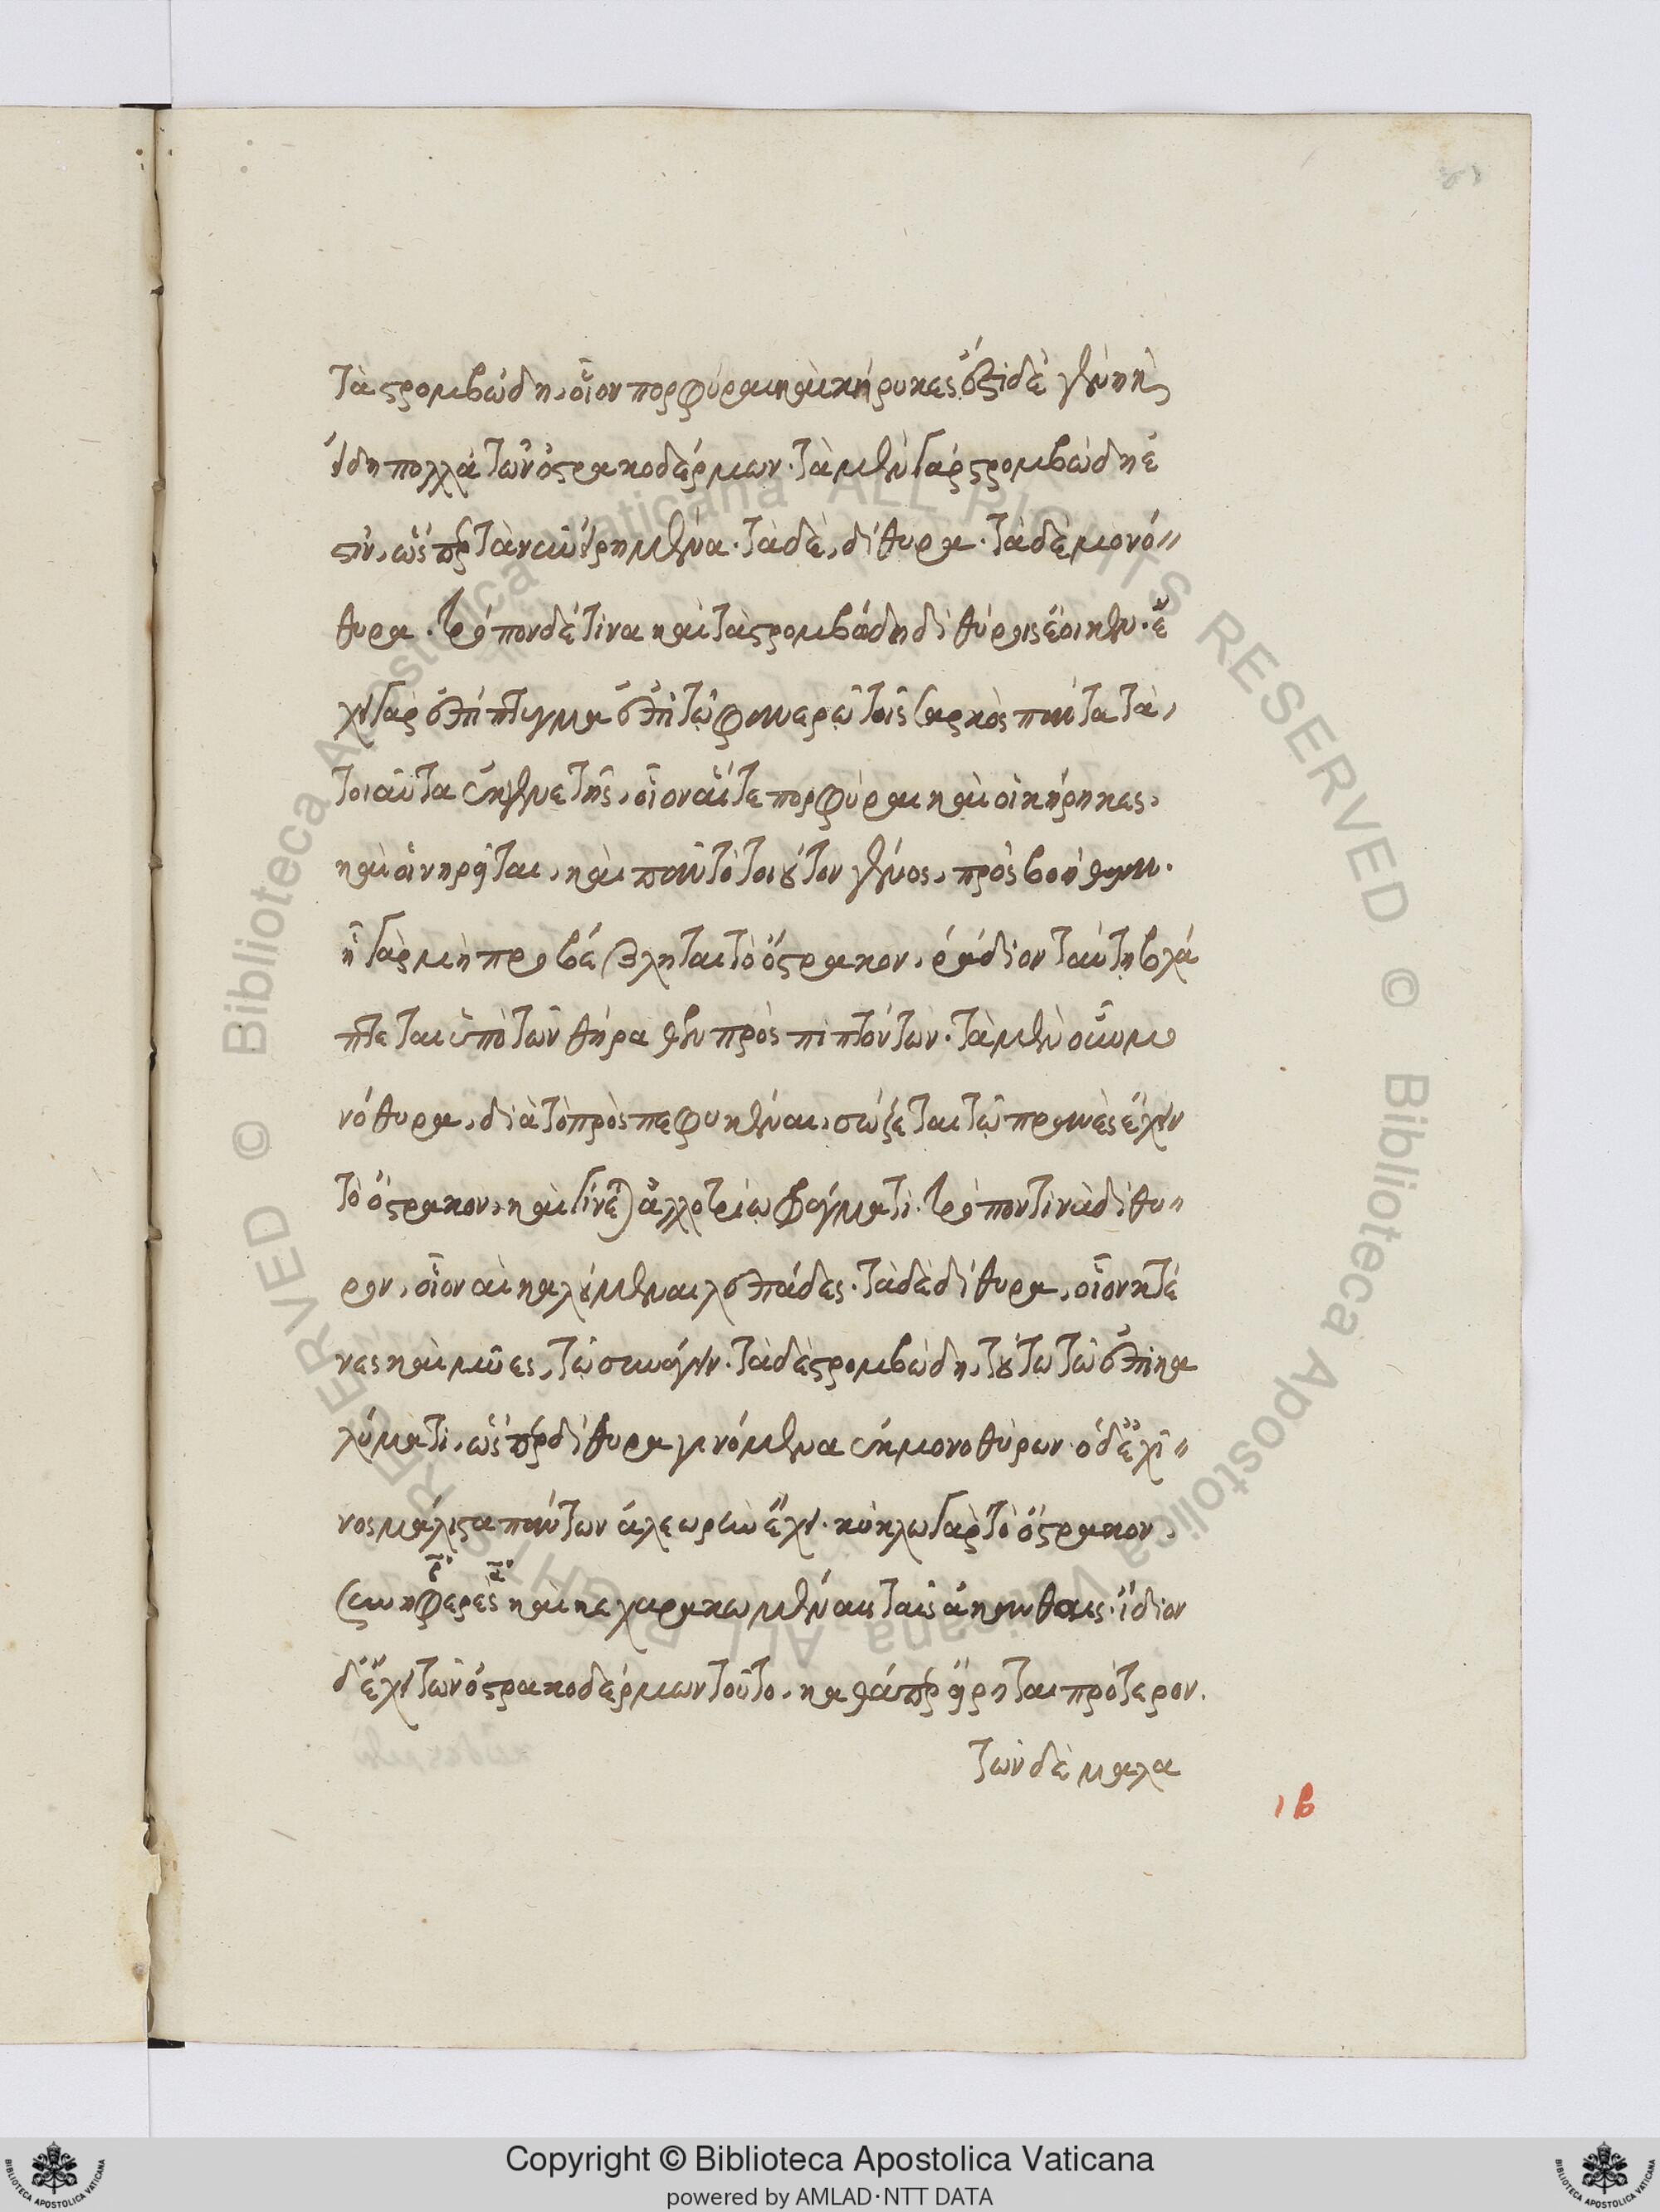 τὰ στρομβώδη, οἷον πορφύραι καὶ κήρυκες. ἐστὶ δὲ γένη καὶ
εἴδη πολλὰ τῶν ὀστρακοδέρμων. τὰ μὲν γὰρ στρομβώδη ἐ
στιν, ὥσπερ τὰ νῦν εἰρημένα. τὰ δὲ, δίθυρα. τὰ δὲ μονό〃
θυρα. τρόπον δέ τινα καὶ τὰ στρομβώδη διθύροις ἔοικεν. ἔ
χει γὰρ ἐπίπτυγμα ἐπὶ τῷ φανερῷ τῆς σαρκὸς πάντα τὰ,
τοιαῦτα ἐκ γενετῆς, οἷον αἵ τε πορφύραι καὶ οἱ κήρηκες,
καὶ οἱ νηρῖται, καὶ πᾶν τὸ τοιοῦτον γένος, πρὸς βοήθειαν.
ᾗ γὰρ μὴ προβέβληται τὸ ὄστρακον, ῥάδιον ταύτῃ βλά
πτεται ὑπὸ τῶν θύραθεν προσπιπτόντων. τὰ μὲν οὖν μο
νόθυρα, διὰ τὸ προσπεφυκέναι, σώζεται τῷ πρανὲς ἔχειν
τὸ ὄστρακον, καὶ γίνεται ἀλλοτρίῳ φράγματι. τρόπον τινὰ δίθυ〃
ρον, οἷον αἱ καλούμεναι λεπάδες. τὰ δὲ δίθυρα, οἷον κτέ
νες καὶ μύες, τῷ συνάγειν. τὰ δὲ στρομβώδη, τούτῳ τῷ ἐπικα
λύματι, ὥσπερ δίθυρα γινόμενα ἐκ μονοθύρων. ὁ δὲ ἐχῖ〃
νος μάλιστα πάντων ἀλεωρὰν ἔχει. κύκλῳ γὰρ τὸ ὄστρακον,
συνηρεφὲς καὶ κεχαρακωμέναις ταῖς ἀκάνθαις. ἴδιον
δ' ἔχει τῶν ὀστρακοδέρμων τοῦτο, καθάπερ εἴρηται πρότερον.
τῶν δὲ μαλα
ιβ
Copyright © Biblioteca Apostolica Vaticana
powered by AMLAD·NTT DATA